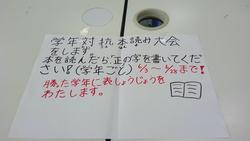 学年対抗本読み大会
をします。
本を読んだら正の字を書いてくだ
さい!(学年ごし) 6/3〜6/28まで!
勝った学年に表しょうじょうを
わたします。